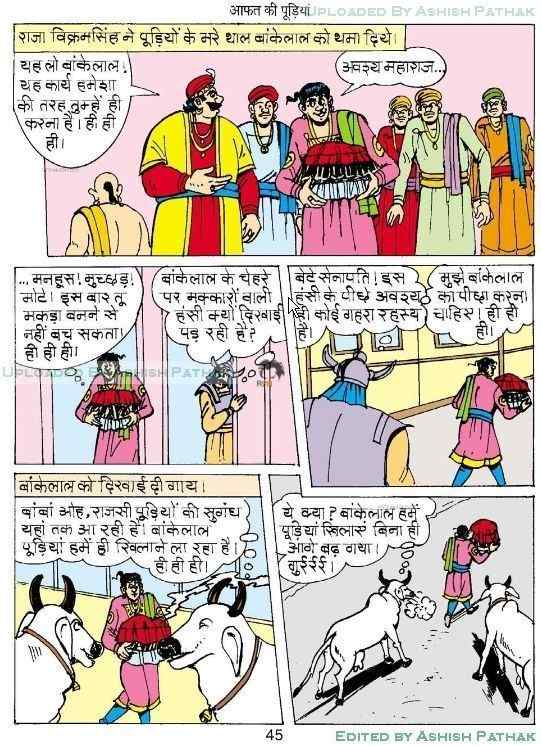 आफत की पूड़ियां
UPLOADED BY ASHISH PATHAK
राजा विक्रमसिंह ने पूड़ियों के भरे थाल बांकेलाल को थमा दिये।
यह लो बांकेलाल!
यह कार्य हमेशा
की तरह तुम्हें ही
करना है। ही ही
ही।
अवश्य महाराज...
... मनहूस! मुच्छड़!
मोटे! इस बार तू
मकड़ा बनने से
नहीं बच सकता।
ही ही ही।
बांकेलाल के चेहरे
पर मक्कारों वाली
हंसी क्यों दिखाई
पड़ रही है?
बेटे सेनापति! इस
हंसी के पीछे अवश्य
ही कोई गहरा रहस्य
है।
मुझे बांकेलाल
का पीछा करना
चाहिए! ही ही
ही।
UPLOADED BY ASHISH PATHAK
बांकेलाल को दिखाई दी गाय।
बांबां ओह, राजसी पूड़ियों की सुगंध
यहां तक आ रही है। बांकेलाल
पूड़ियां हमें ही खिलाने ला रहा है।
ही ही ही।
ये क्या? बांकेलाल हमें
पूड़ियां खिलाए बिना ही
आगे बढ़ गया।
गुर्रर्रर्र।
45
EDITED BY ASHISH PATHAK